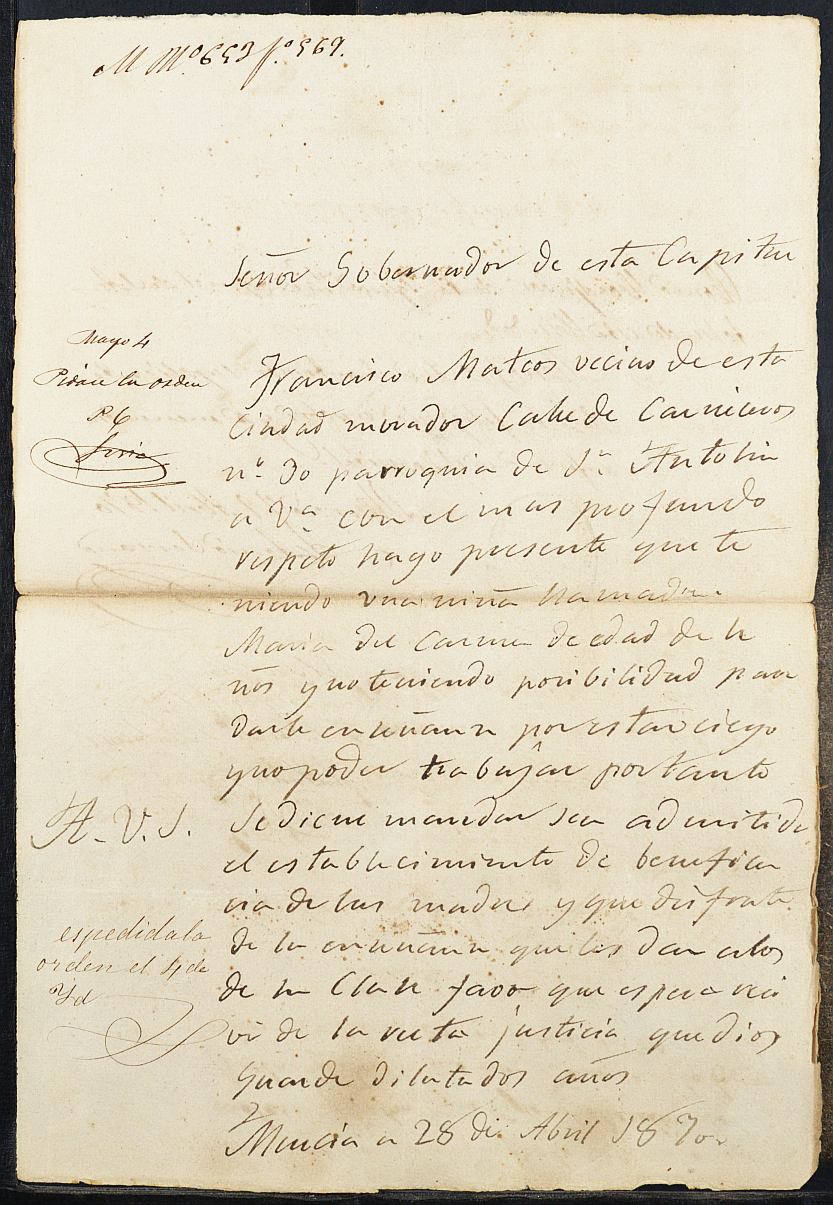 Nº 653 fº 569.
Señor Gobernador de esta Capital
Mayo 4
Pidase la orden
Soria
Francisco Mateos vecino de esta
Ciudad morador Calle de Carniceros
nº 30 parroquia de Sn Antolin
a Va con el mas profundo
respeto hago presente que te
niendo una niña llamada
Maria del Carmen de edad de
ños y no teniendo posibilidad para
darle enseñansa por estar ciego
y no poder trabajar por tanto
A. V. S.
Se digne mandar sea admitida
el establecimiento de benefisen
cia de las madres y que disfrute
de la enseñansa que les dan a los
de su Clase favor que espera reci
vir de la recta justicia que dios
Guarde dilatados años
espedida la
orden el 4 de
Yd
Murcia a 28 de Abril 1870